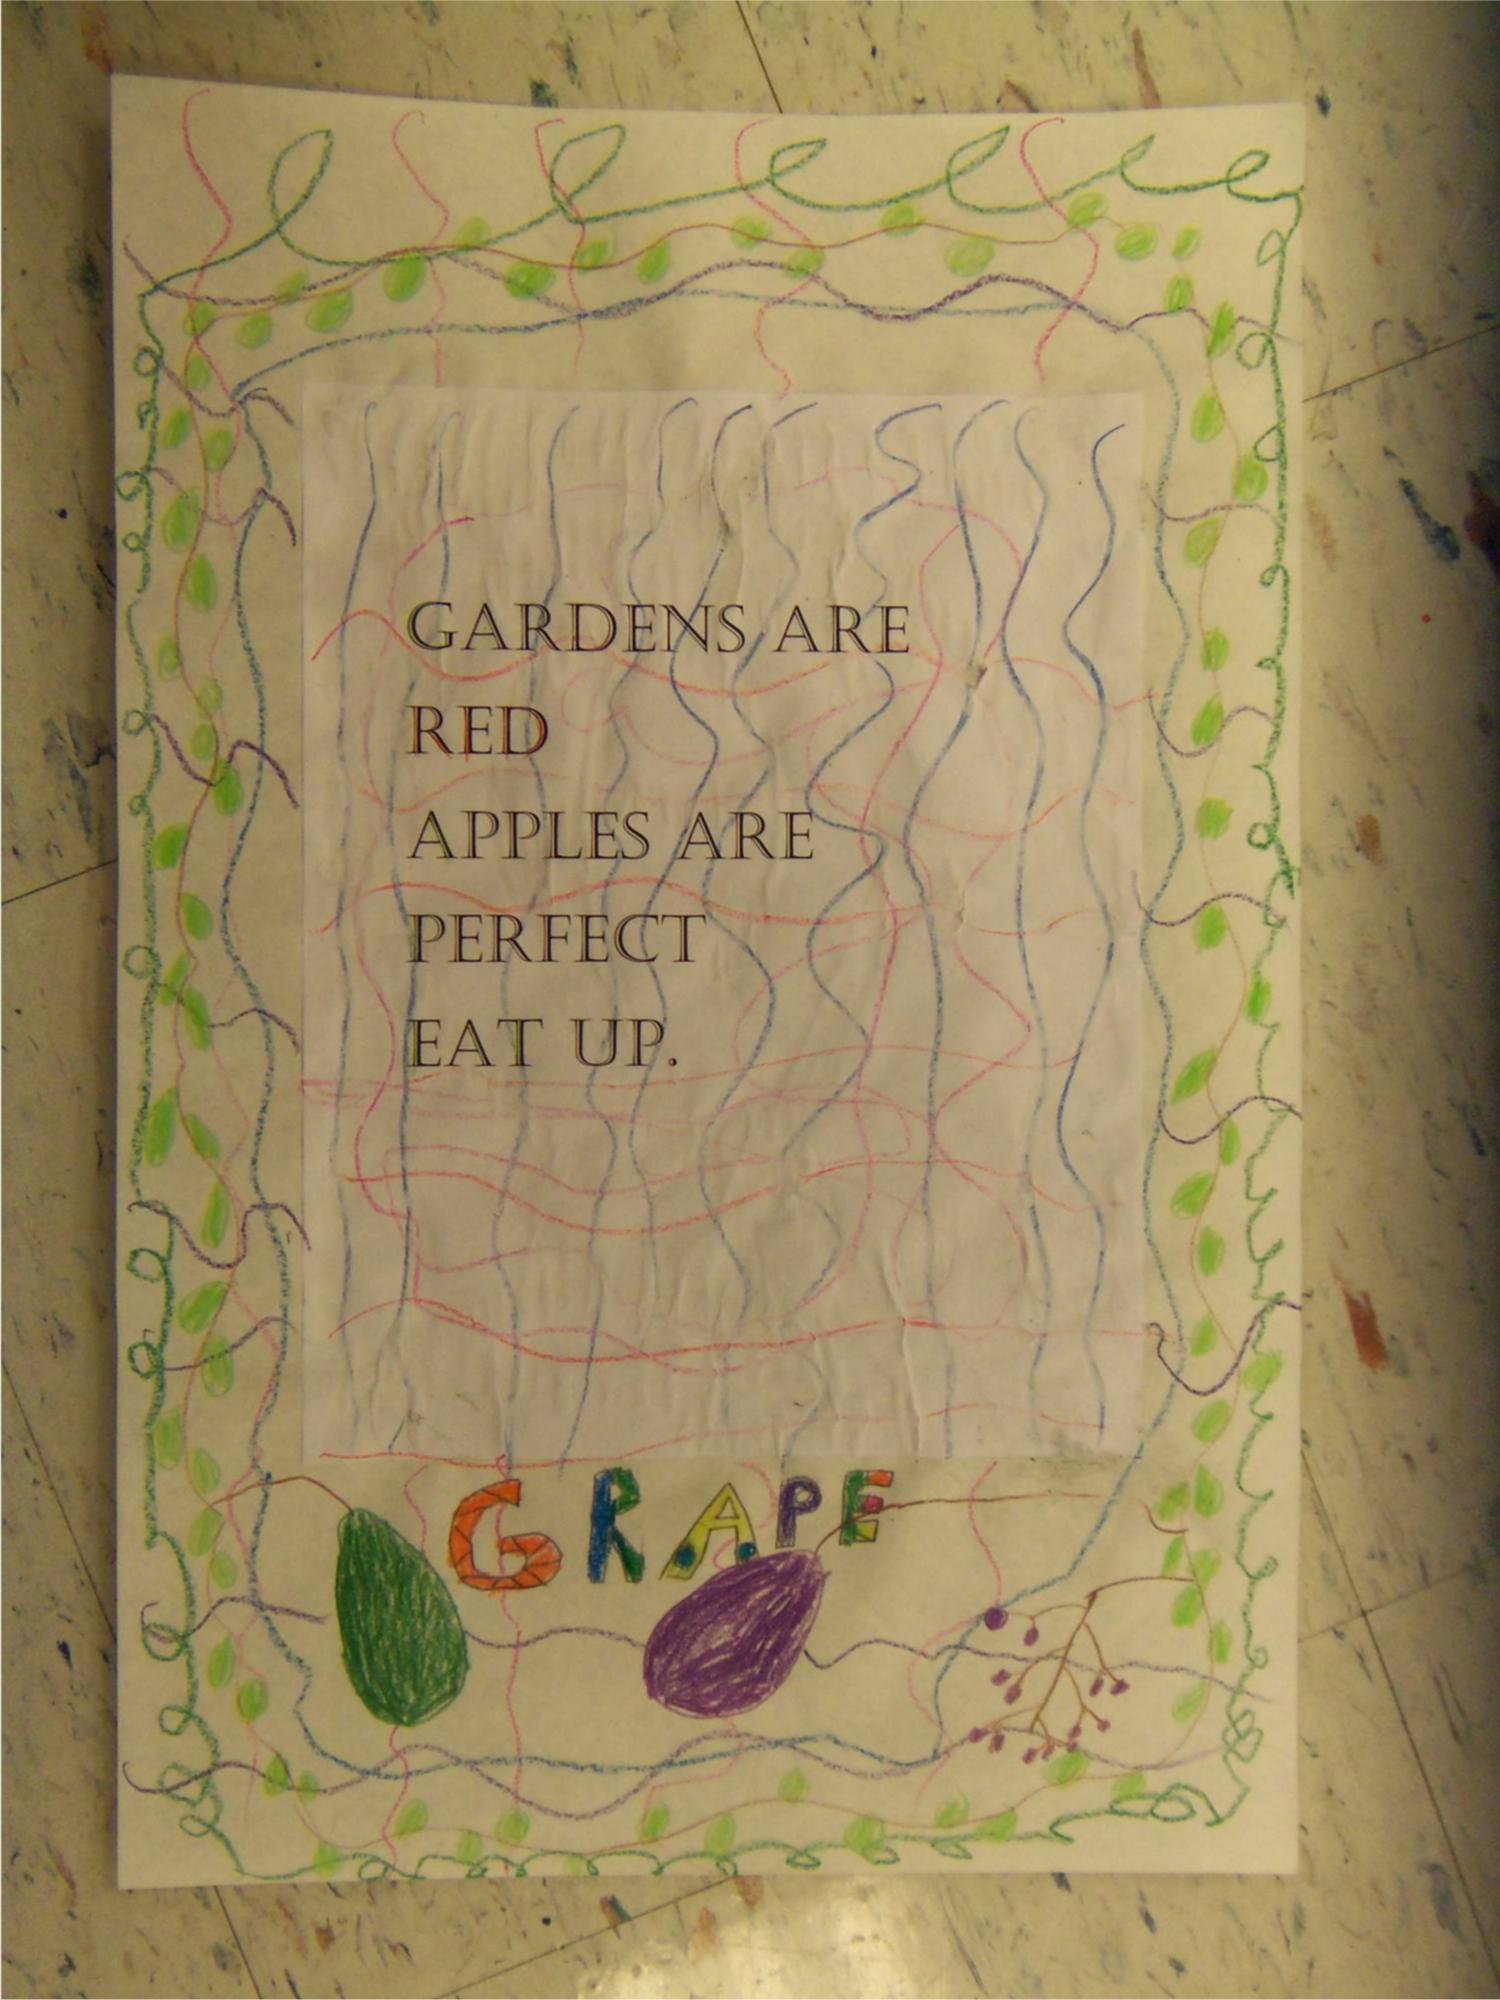 GARDENS ARE
RED
APPLES ARE
PERFECT
EAT UP.
GRAPE